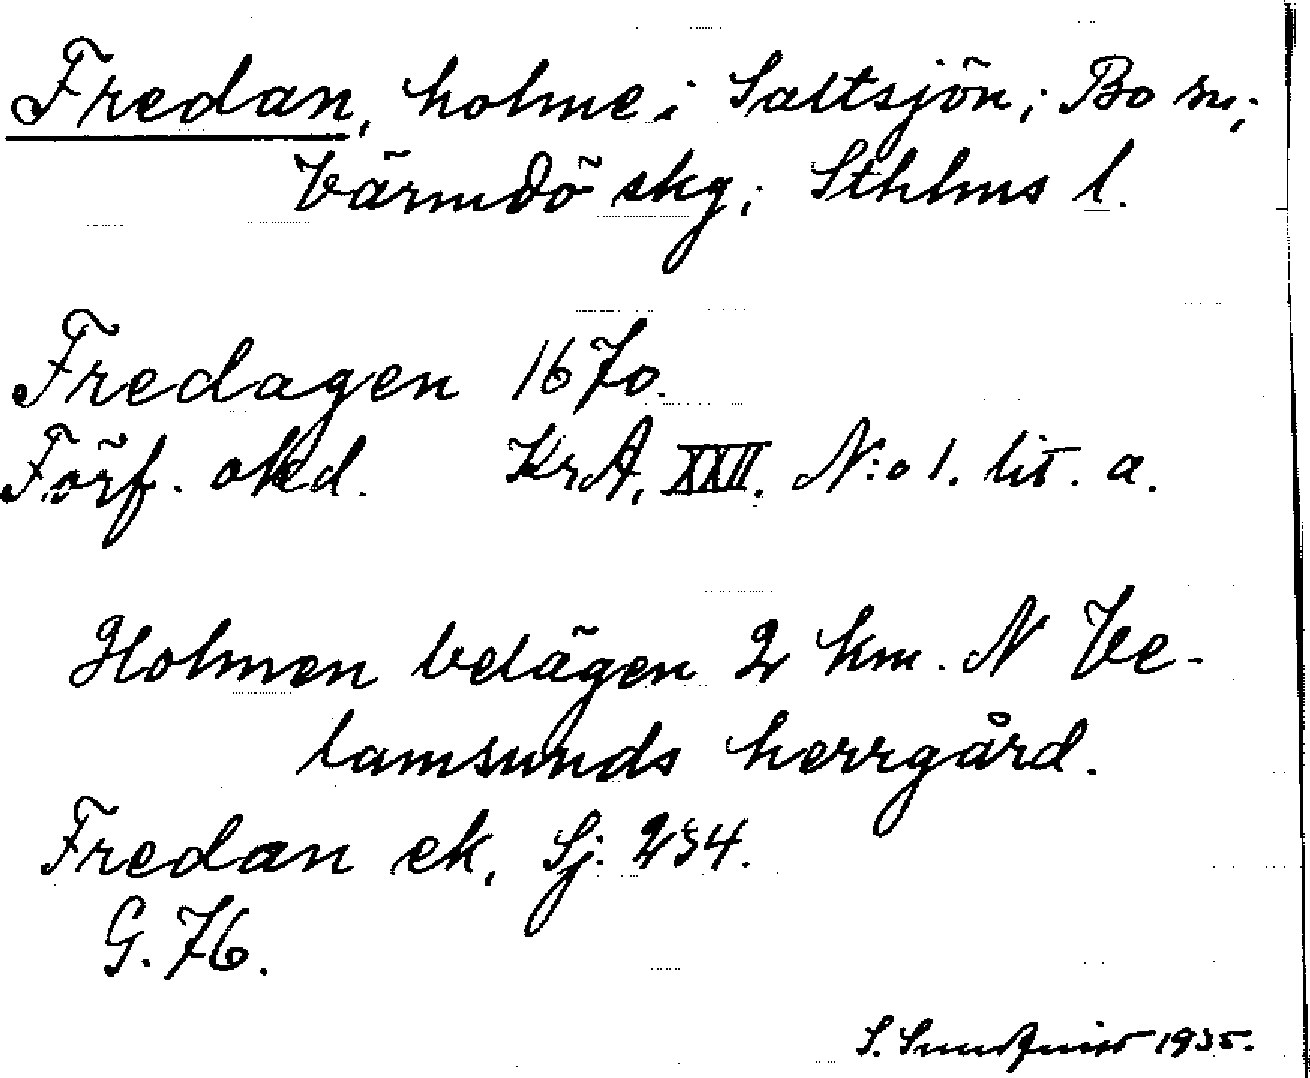 Fredan, holme i Saltsjön; Bo sn;
Värmdö skg; Sthlms l.
Fredagen 1670.
Förf. okd. KrA, XXII. N:o 1. lit. a.
Holmen belägen 2 km. N Ve-
lamsunds herrgård.
Fredan ek, Sj. 234.
G. 76.
S. 1935.